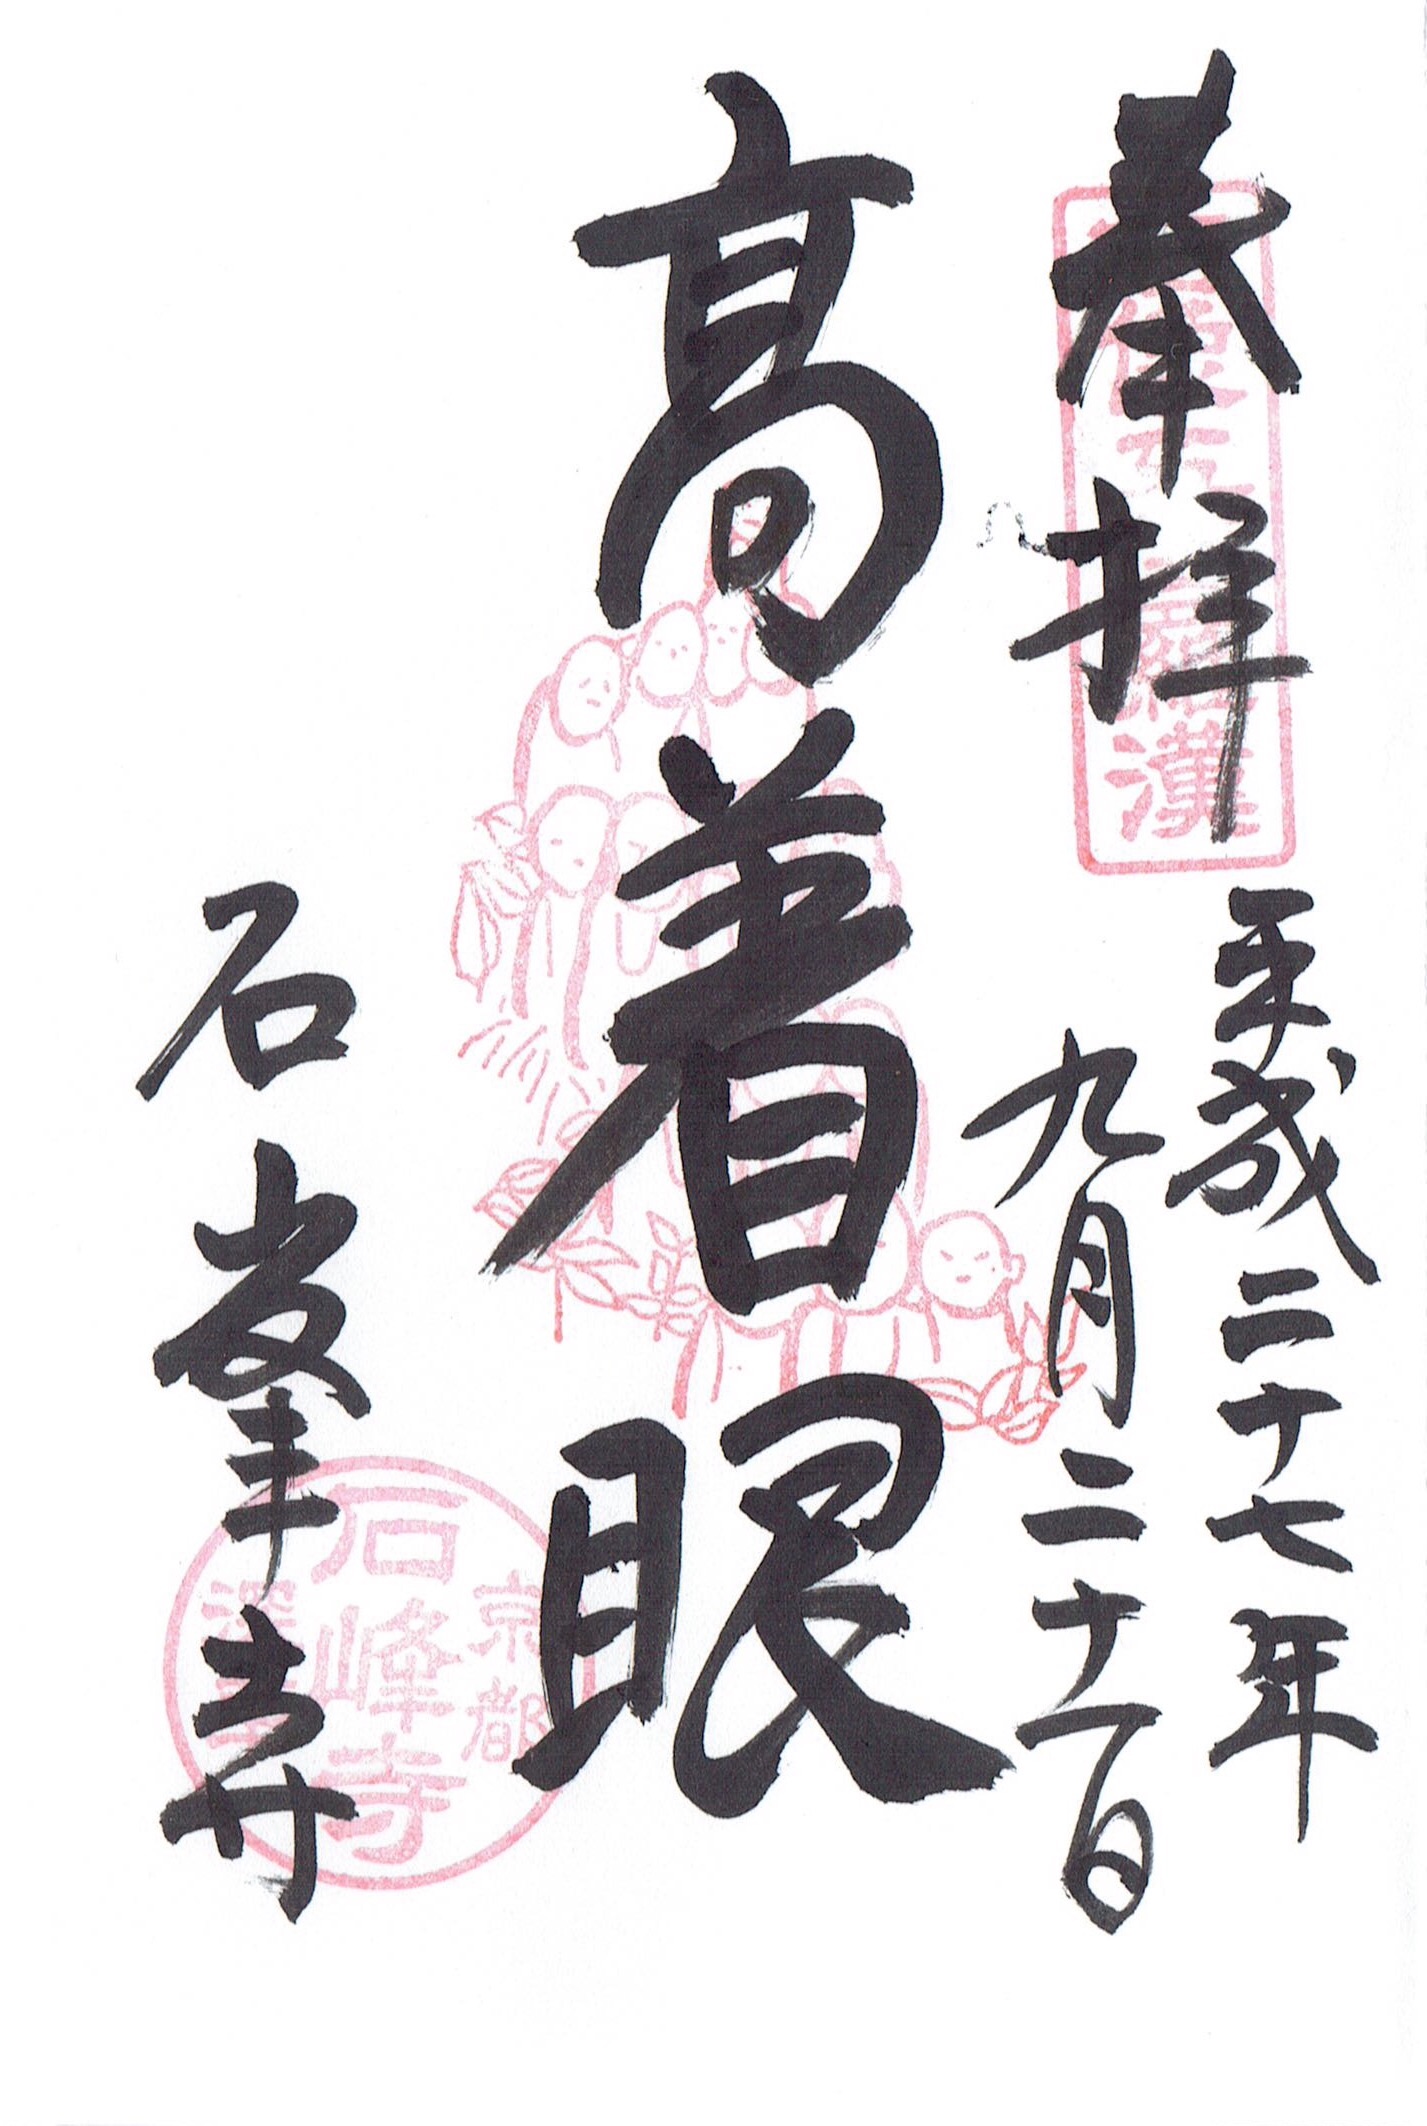 奉拝
羅漢
平成二十七年
九月二十一日
高着眼
石峯寺
京都
石峰寺
深